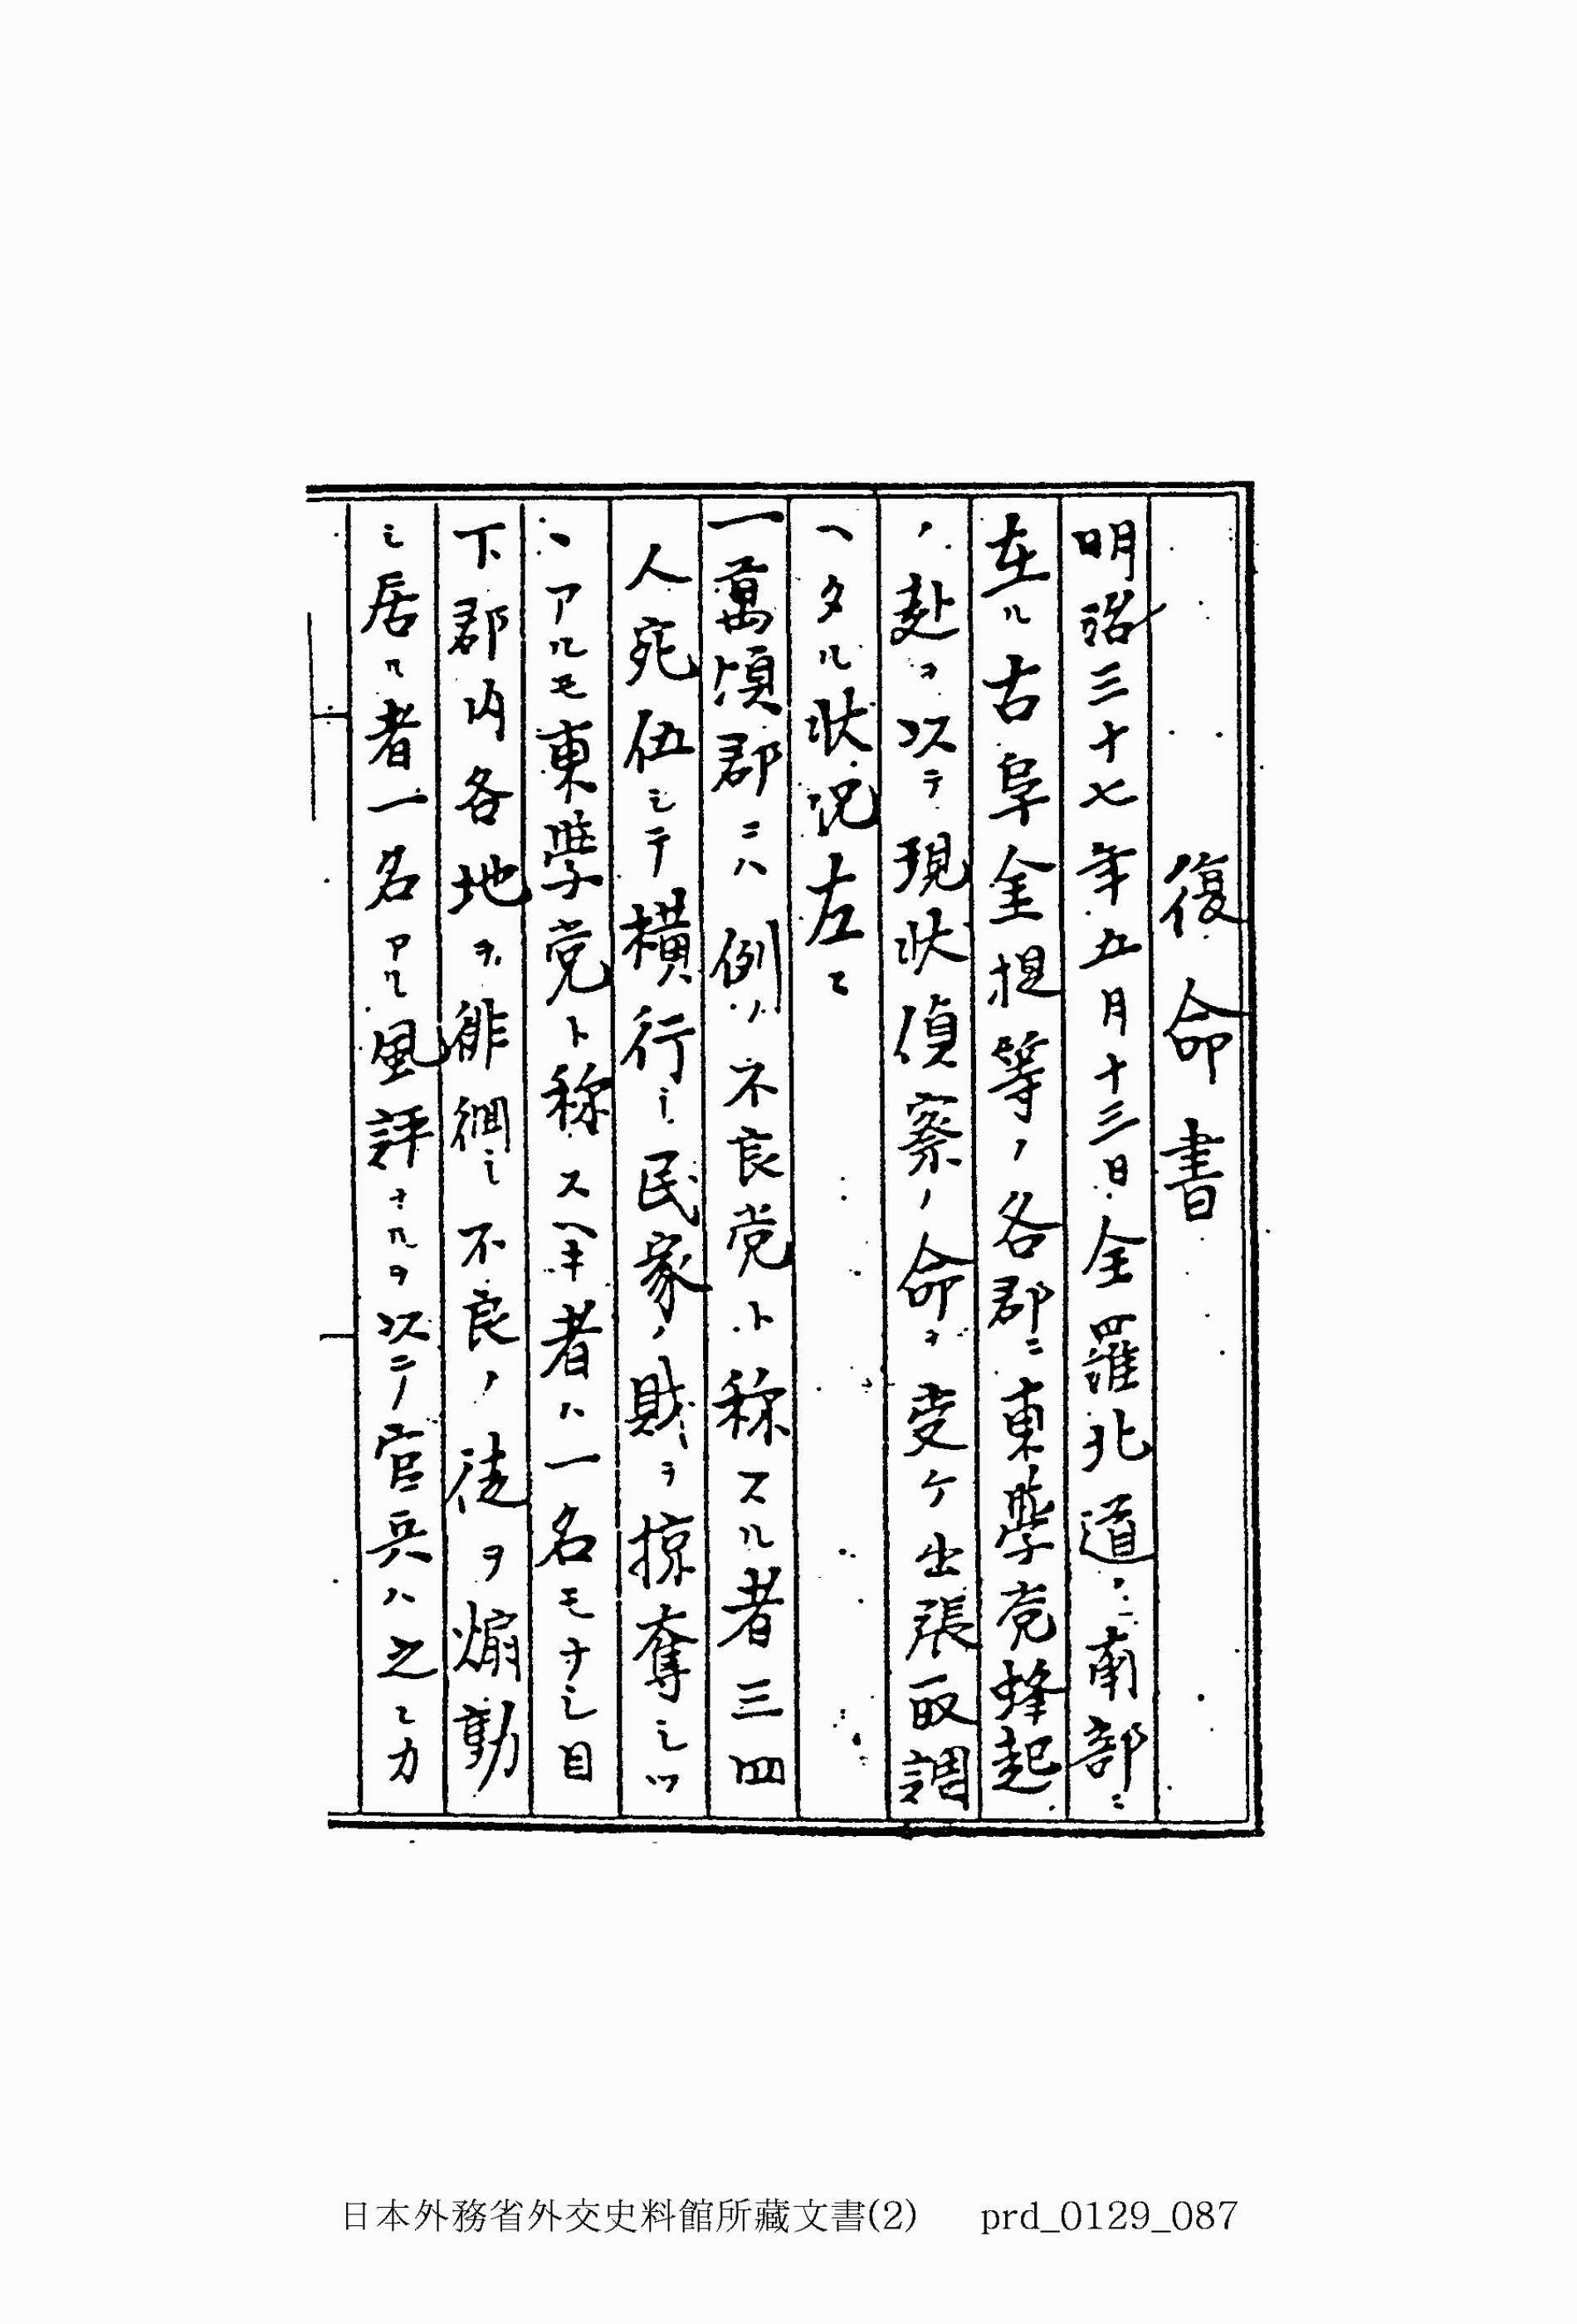 復命書
明治三十七年五月十三日全羅北道ノ南部ニ
在ル古阜金提等ノ各郡ニ東學党蜂起
ノ赴ヲ以テ現状偵察ノ命ヲ受ケ出張取調
ヘタル状況左ニ
一萬頃郡ニハ例ノ不良党ト称スル者三四
人宛伍シテ横行シ民家ノ財ヲ掠奪シツ
、アルモ東學党ト称スヘキ者ハ一名モナシ目
下郡内各地ヲ徘徊シ不良ノ徒ヲ煽動
シ居ル者一名アル風評ナルヲ以テ官兵ハ之レカ
日本外務省外交史料館所藏文書(2) prd_0129_087